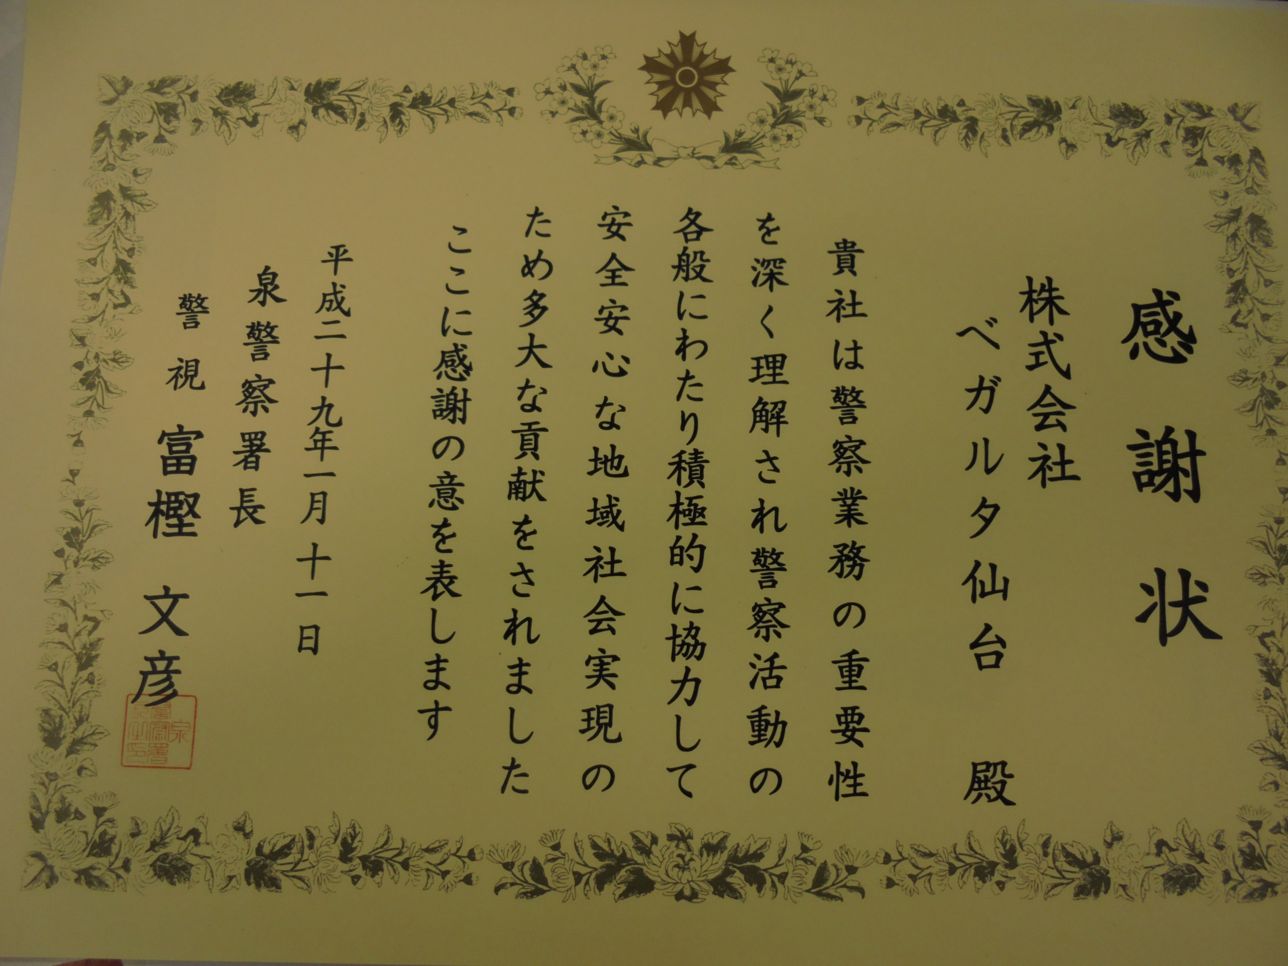 感謝状
株式会社
ベガルタ仙台 殿
貴社は警察業務の重要性
を深く理解され警察活動の
各般にわたり積極的に協力して
安全安心な地域社会実現の
ため多大な貢献をされました
ここに感謝の意を表します
平成二十九年一月十一日
泉警察署長
警視 富樫 文彦